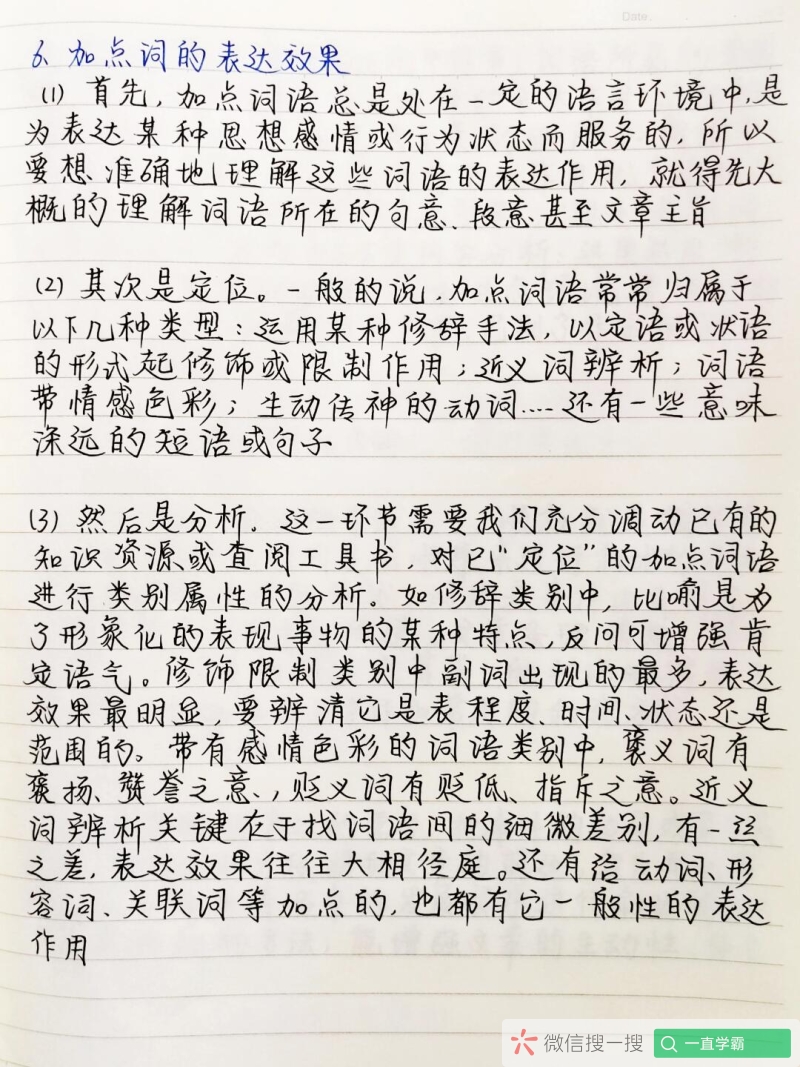 Date.
6、加点词的表达效果
(1) 首先，加点词语总是处在一定的语言环境中，是
为表达某种思想感情或行为状态而服务的，所以
要想准确地理解这些词语的表达作用，就得先大
概的理解词语所在的句意、段意甚至文章主旨
(2) 其次是定位。一般的说，加点词语常常归属于
以下几种类型：运用某种修辞手法，以定语或状语
的形式起修饰或限制作用；近义词辨析；词语
带情感色彩；生动传神的动词....还有一些意味
深远的短语或句子
(3) 然后是分析。这一环节需要我们充分调动已有的
知识资源或查阅工具书，对已“定位”的加点词语
进行类别属性的分析。如修辞类别中，比喻是为
了形象化的表现事物的某种特点，反问可增强肯
定语气。修饰限制类别中副词出现的最多，表达
效果最明显，要辨清它是表程度、时间、状态还是
范围的。带有感情色彩的词语类别中，褒义词有
褒扬、赞誉之意、，贬义词有贬低、指斥之意。近义
词辨析关键在于找词语间的细微差别，有一丝
之差，表达效果往往大相径庭。还有给动词、形
容词、关联词等加点的，也都有它一般性的表达
作用
微信搜一搜
一直学霸